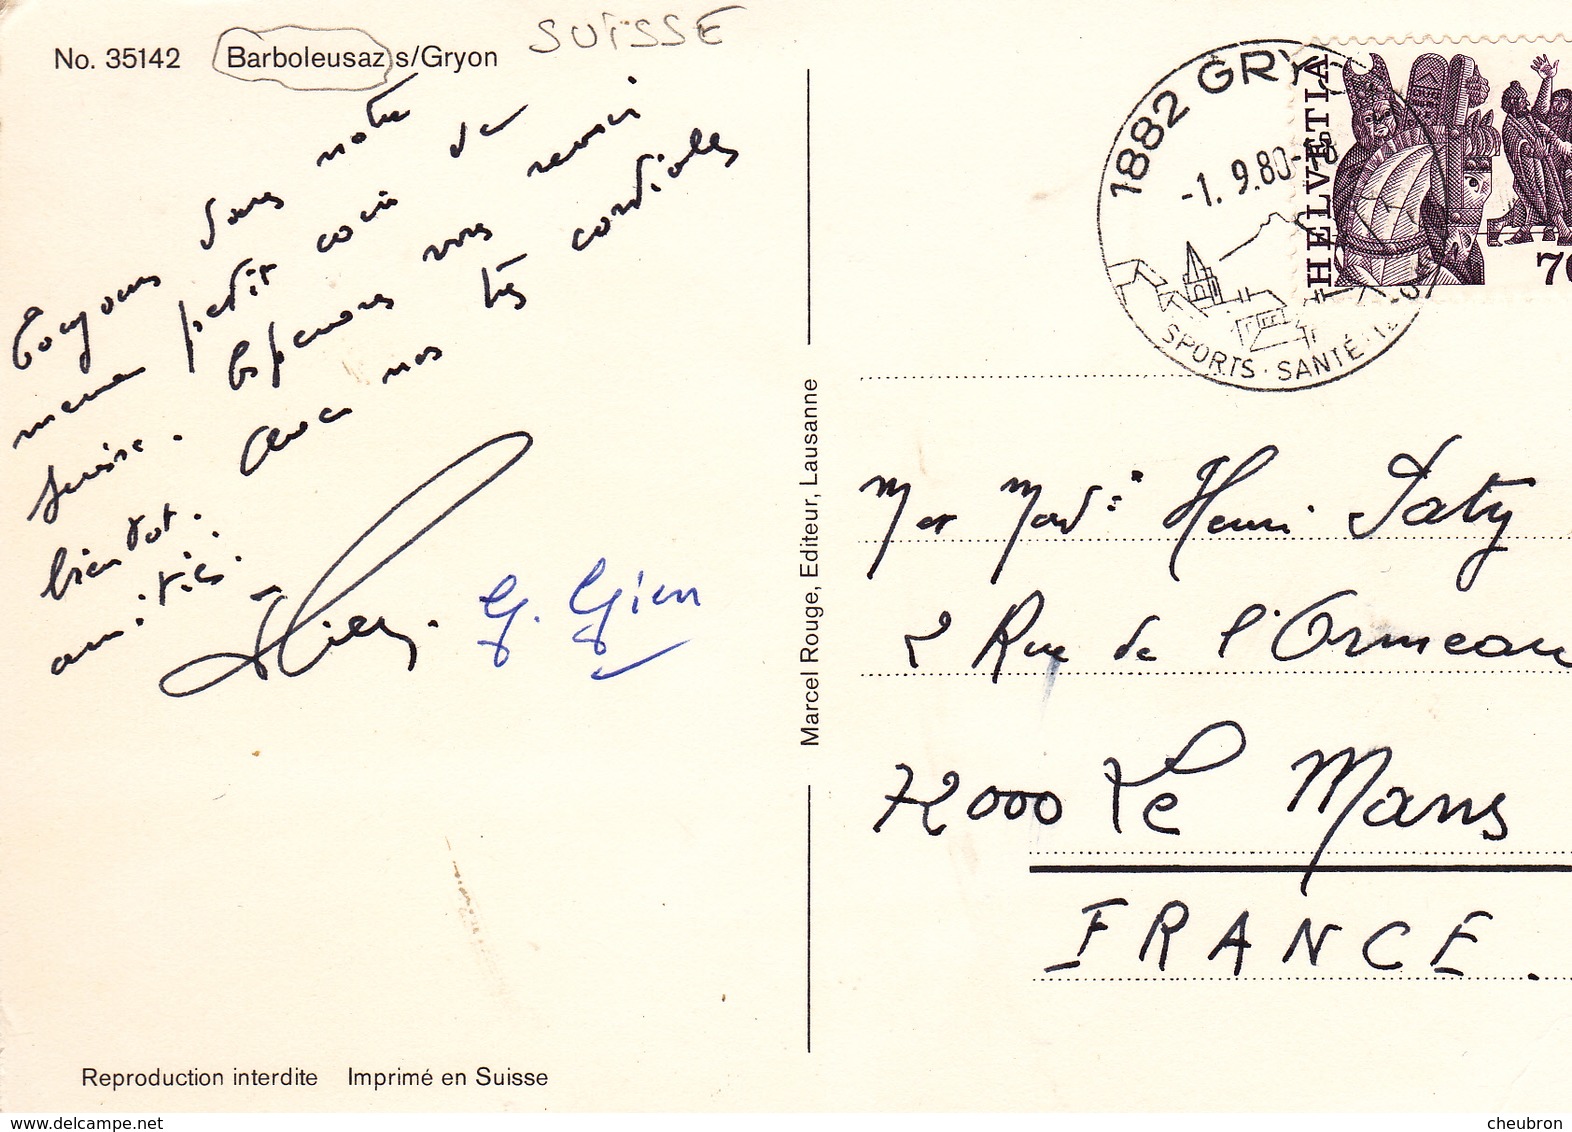 No. 35142 Barboleusaz s/Gryon SUISSE
Toujours dans notre
même petit coin de
Suisse. Espérons vous revoir
bientôt. Avec nos très cordiales
amitiés.
G. Gien
Marcel Rouge, Editeur, Lausanne
Reproduction interdite Imprimé en Suisse
1882 GRY
-1. 9.80-18
SPORTS · SANTÉ
HELVETIA
70
Mr et Mad: Henri Taty
2 Rue de l'Ormeau
72000 Le Mans
FRANCE.
www.delcampe.net
cheubron